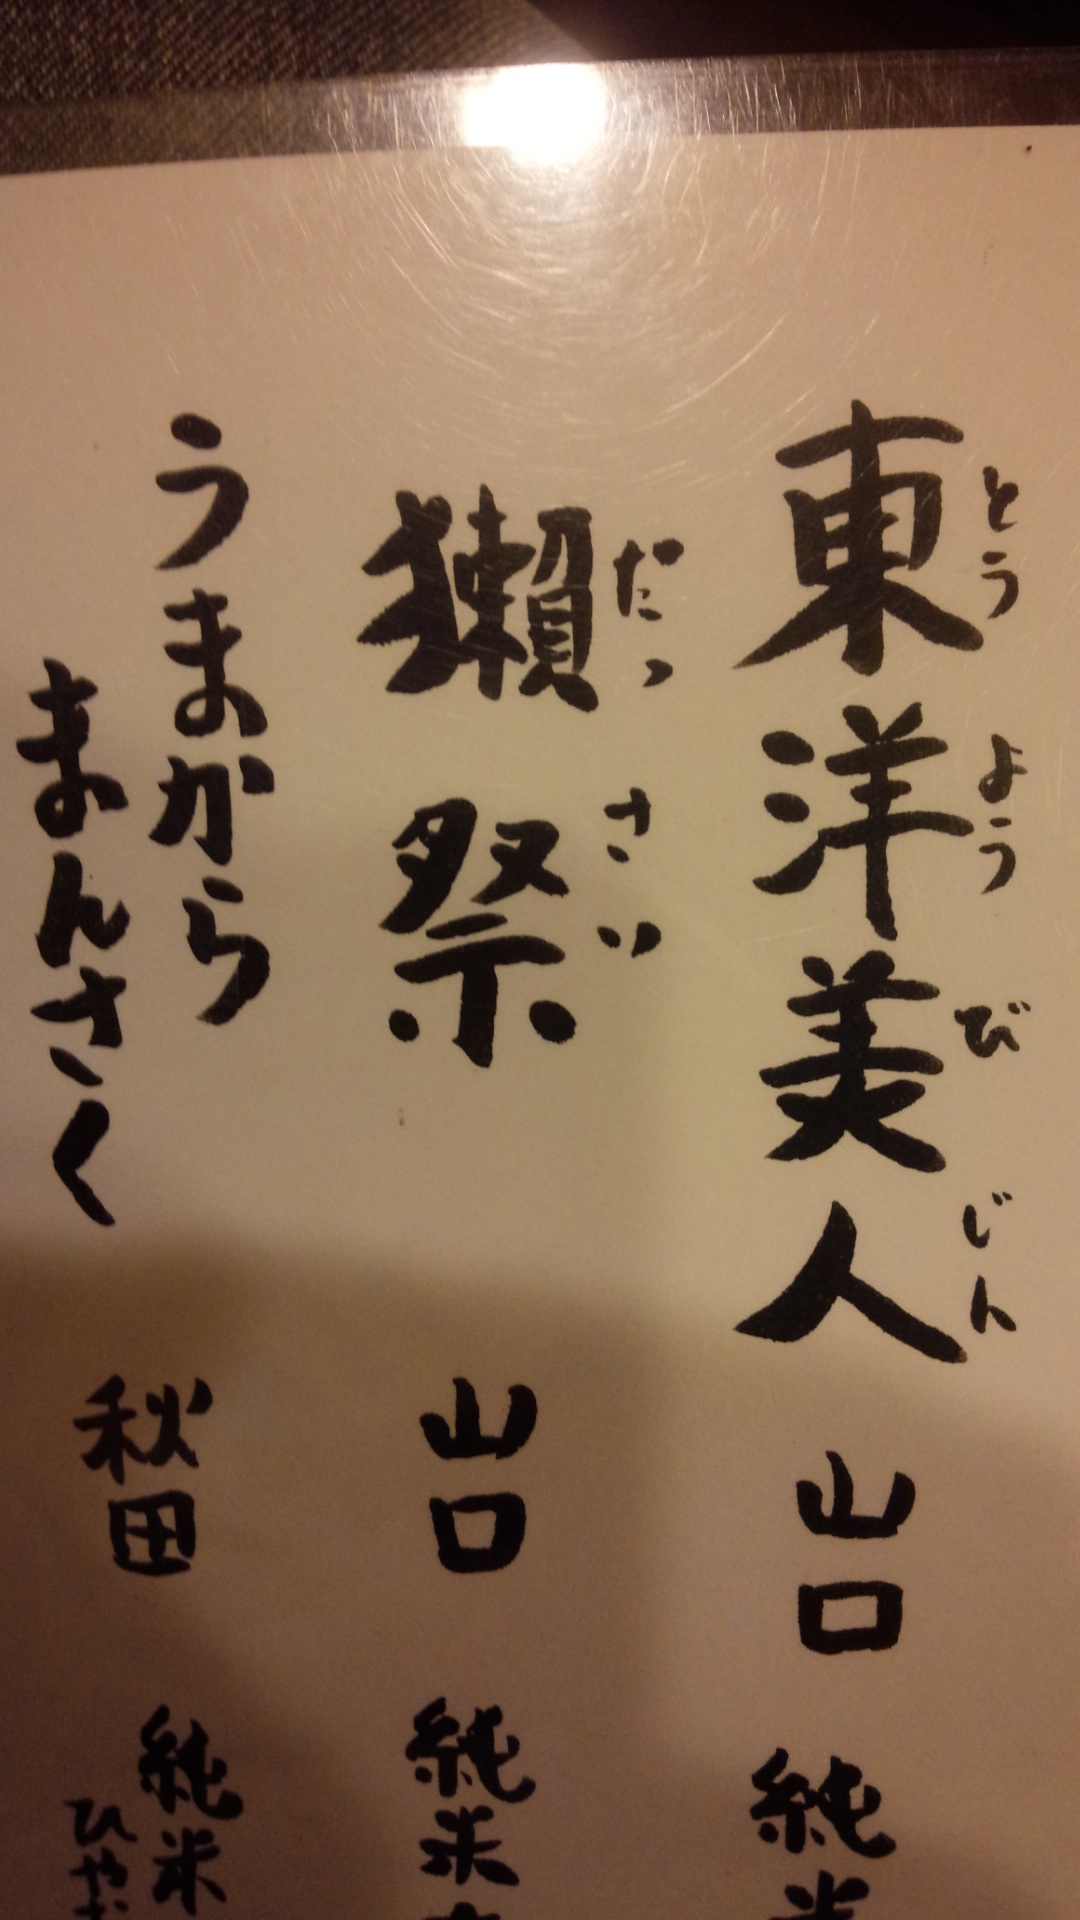 東洋美人 山口 純米
とうようびじん
獺祭 山口 純米
だっさい
うまから
まんさく 秋田 純米
ひや